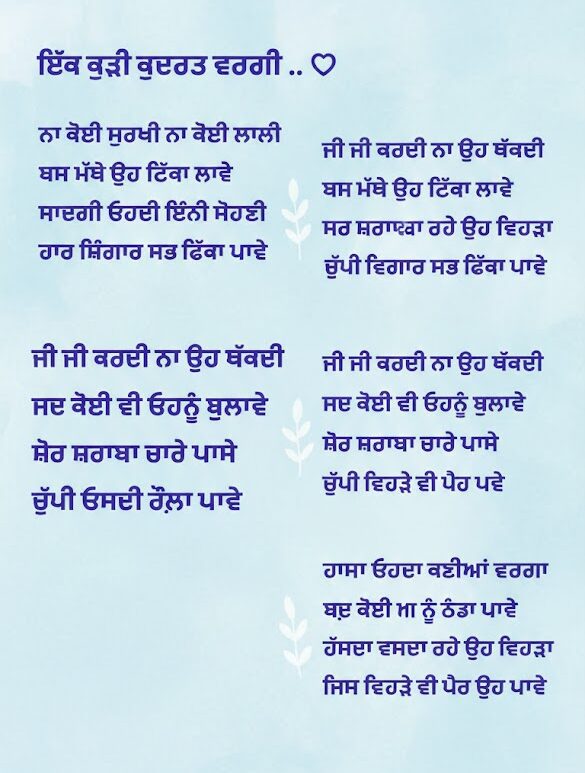 ਇੱਕ ਕੁੜੀ ਕੁਦਰਤ ਵਰਗੀ .. ♡
ਨਾ ਕੋਈ ਸੁਰਖੀ ਨਾ ਕੋਈ ਲਾਲੀ
ਬਸ ਮੱਥੇ ਉਹ ਟਿੱਕਾ ਲਾਵੇ
ਸਾਦਗੀ ਓਹਦੀ ਇੰਨੀ ਸੋਹਣੀ
ਹਾਰ ਸ਼ਿੰਗਾਰ ਸਭ ਫਿੱਕਾ ਪਾਵੇ
ਜੀ ਜੀ ਕਰਦੀ ਨਾ ਉਹ ਥੱਕਦੀ
ਸਦ ਕੋਈ ਵੀ ਓਹਨੂੰ ਬੁਲਾਵੇ
ਸ਼ੋਰ ਸ਼ਰਾਬਾ ਚਾਰੇ ਪਾਸੇ
ਚੁੱਪੀ ਓਸਦੀ ਰੌਲ਼ਾ ਪਾਵੇ
ਜੀ ਜੀ ਕਰਦੀ ਨਾ ਉਹ ਥੱਕਦੀ
ਬਸ ਮੱਥੇ ਉਹ ਟਿੱਕਾ ਲਾਵੇ
ਸਰ ਰਹੇ ਉਹ ਵਿਹੜਾ
ਚੁੱਪੀ ਵਿਗਾਰ ਸਭ ਫਿੱਕਾ ਪਾਵੇ
ਜੀ ਜੀ ਕਰਦੀ ਨਾ ਉਹ ਥੱਕਦੀ
ਸਦ ਕੋਈ ਵੀ ਓਹਨੂੰ ਬੁਲਾਵੇ
ਸ਼ੋਰ ਸ਼ਰਾਬਾ ਚਾਰੇ ਪਾਸੇ
ਚੁੱਪੀ ਵਿਹੜੇ ਵੀ ਪੈਹ ਪਵੇ
ਹਾਸਾ ਓਹਦਾ ਕਣੀਆਂ ਵਰਗਾ
ਕੋਈ ਨੂੰ ਠੰਡਾ ਪਾਵੇ
ਹੱਸਦਾ ਵਸਦਾ ਰਹੇ ਉਹ ਵਿਹੜਾ
ਜਿਸ ਵਿਹੜੇ ਵੀ ਪੈਰ ਉਹ ਪਾਵੇ